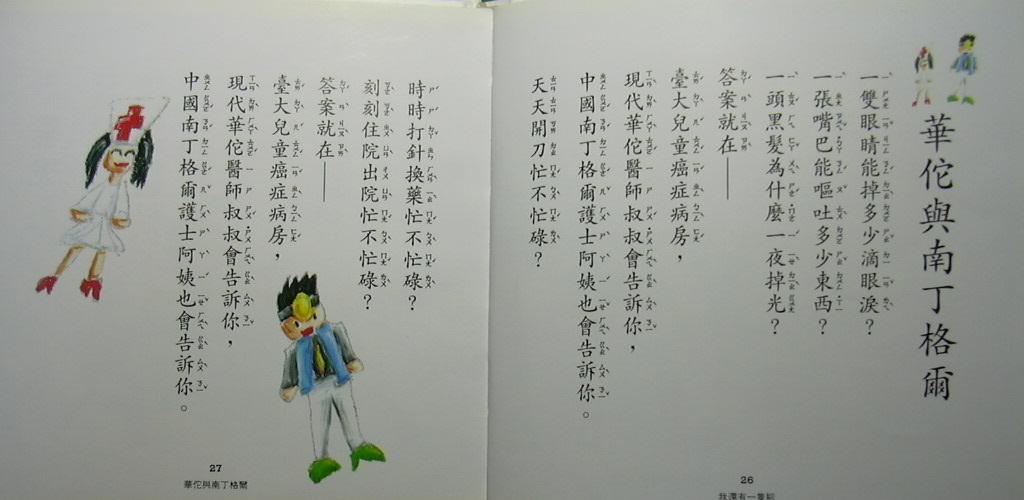 華佗與南丁格爾
一雙眼睛能掉多少滴眼淚？
一張嘴巴能嘔吐多少東西？
一頭黑髮為什麼一夜掉光？
答案就在——
臺大兒童癌症病房，
現代華佗醫師叔叔會告訴你，
中國南丁格爾護士阿姨也會告訴你。
天天開刀忙不忙碌？
26
我還有一隻腳
時時打針換藥忙不忙碌？
刻刻住院出院忙不忙碌？
答案就在——
臺大兒童癌症病房，
現代華佗醫師叔叔會告訴你，
中國南丁格爾護士阿姨也會告訴你。
27
華佗與南丁格爾